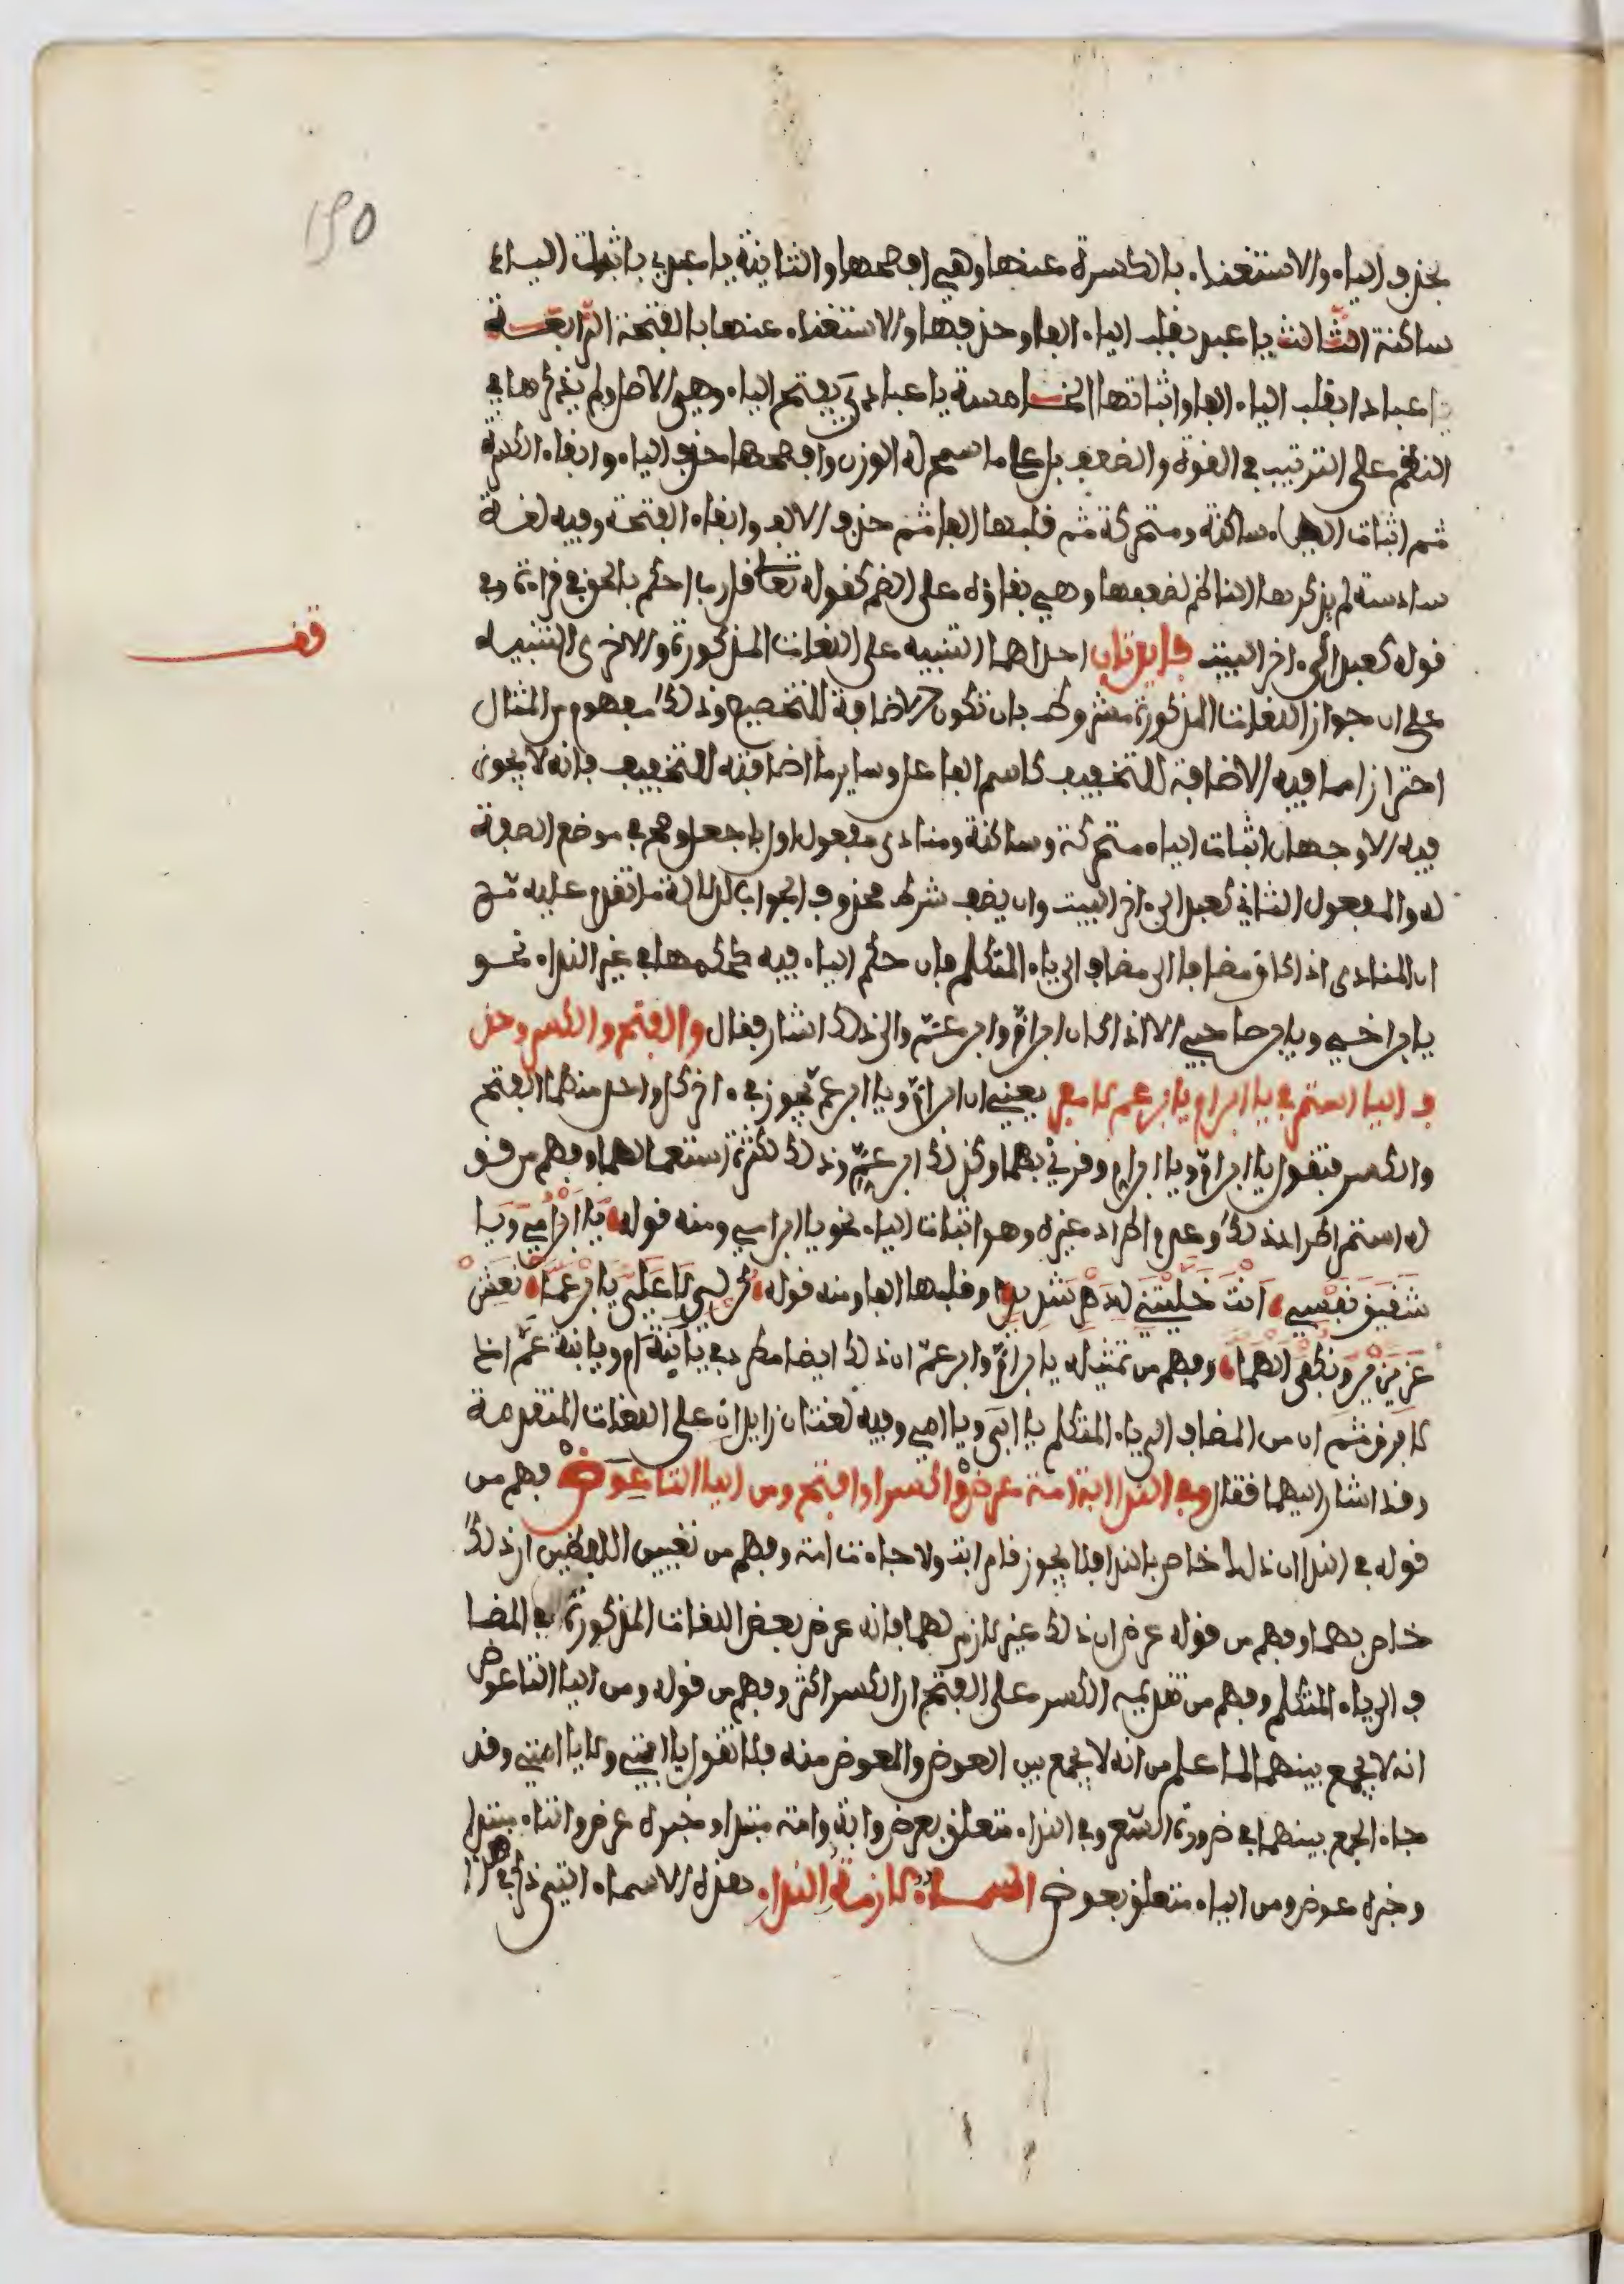 150
بحذف الياء والاستغناء بالكسرة عنها وهي افصحها والثانية يا عبدي باثبات الياء
ساكنة الثالث يا عبد بقلب الياء الفا وحذفها والاستغناء عنها بالفتحة الرابعة
يا عبدا بقلب الياء الفا واثباتها الخامسة يا عبدي بفتح الياء وهي الاصل ولم يذكرها في
النظم على الترتيب في القوة والضعف بل على ما سمح له الوزن وافصحها حذف الياء وابقاء الكسرة
ثم اثبات الياء ساكنة ومتحركة ثم قلبها الفا ثم حذف الالف وابقاء الفتحة وفيه لغة
سادسة لم يذكرها الناظم لضعفها وهي بناؤه على الضم كقوله تعالى قل رب احكم بالحق في قراءة وفي
قوله كعبد الى ءاخر البيت فايدتان احداهما التنبيه على اللغات المذكورة والاخرى التنبيه
على ان جواز اللغات المذكورة مشروط بان تكون الاضافة للتخصيص وذلك مفهوم من المثال
احترازا مما فيه الاضافة للتخفيف كاسم الفاعل وساير ما اضافته للتخفيف فانه لا يجوز
فيه الا وجهان اثبات الياء متحركة وساكنة ومنادى مفعول اول باجعل وصح في موضع الصفة
له والمفعول الثاني كعبد الى ءاخر البيت وان يضف شرط محذوف الجواب لدلالة ما تقدم عليه ثم
ان المنادى اذا كان مضافا الى مضاف الى ياء المتكلم فان حكم الياء فيه كحكمها في غير النداء نحو
يا ابن اخي ويا ابن صاحبي الا اذا كان ابن ام وابن عم والى ذلك اشار فقال والفتح والكسر وحذ
ف اليا استمر في يا ابن ام يا ابن عم لا مفر يعني ان ابن ام ويا ابن عم يجوز في ءاخر كل واحد منهما الفتح
والكسر فتقول يا ابن ام ويا ابن ام وقرئ بهما وكذلك ابن عم وذلك لكثرة استعمالهما وفهم من قو
له استمر اطراد ذلك وعدم اطراد غيره وهو اثبات الياء نحو يا ابن امي ومنه قوله يا ابن امي ويا
شقيق نفسي انت خليتني لدهر شديد وقلبها الفا ومنه قوله
عزيزين ونكفى الهما وفهم من تمثيله يا ابن ام وابن عم ان ذلك ايضا مطرد في يا ابنة ام ويا ابنة عم اذ لا
فرق ثم ان من المضاف الى ياء المتكلم يا ابي ويا امي وفيه لغتان زايدان على اللغات المتقدمة
وقد اشار اليهما فقال وفي الندا ابت امت عرض واكسر او افتح ومن اليا التا عوض فهم من
قوله في الندا ان ذلك خاص بالندا فلا يجوز قام ابت ولا جاءت امت وفهم من تعيين اللفظين ان ذلك
خاص بهما وفهم من قوله عرض ان ذلك غير لازم لهما فانه عرض بعض اللغات المذكورة في المضا
ف الى ياء المتكلم وفهم من تقديمه الكسر على الفتح ان الكسر اكثر وفهم من قوله ومن اليا التا عوض
انه لا يجمع بينهما لما علم من انه لا يجمع بين العوض والمعوض منه فلا تقول يا ابتي ولا يا امتي وقد
جاء الجمع بينهما في ضرورة الشعر وفي النداء متعلق بعرض وابت وامت مبتدا وخبره عرض والتاء مبتدا
وخبره عوض ومن الياء متعلق بعوض اسماء لازمت النداء هذه الاسماء التي ذكر في هذا
قف